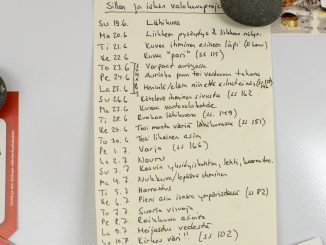 Silen ja iskän valokuvaprojekti
Su 19.6. Lähikuva
Ma 20.6 Liikkeen pysäytys & liikkeen näkym.
Ti 21.6 Kuvaa ihminen esineen läpi
Ke 22.6 Kuvaa "pari" (ss 115)
To 23.6 Varpaat auringossa
Pe 24.6 Aurinko puun tai vastaavan takana
La 25.6 Henkilö/eläin niitten esinettä
Su 26.6 Kävelevä ihminen sivusta (ss 162
Ma 27.6 Kuvaa vastavalokohde
Ti 28.6 Ruokaa lähikuvana (ss. 149)
Ke 29.6 Tosi monta väriä lähikuvassa (ss 151)
To 30.6 Tosi likainen asia
Pe 1.7. Varjo (ss 166)
La 2.7 Nauru
Su 3.7 Kasvin yksityiskohtia, lehti,
Ma 4.7. Nukkuva/lepäävä ihminen
Ti 5.7 Harrastus
Ke 6.7 Pieni asia isossa ympäristössä (ss 82)
To 7.7 Suoria viivoja
Pe 8.7 Roikkuvia asioita
La 9.7 Heijastus vedestä
Su 10.7 Kirkas väri!! (ss 102)